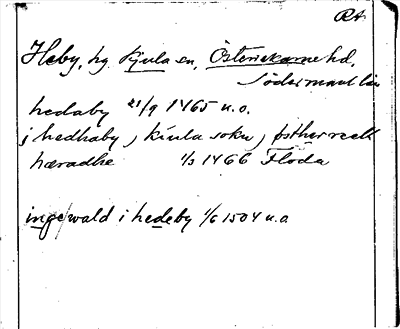 RA
Heby, hg. Kjula sn, Österrekarne hd,
Södermanl. län
hedaby 21/9 1465 u.o.
j hedhaby, kiula sokn, østherreck
hæradhe 1/3 1466 Floda
ingewald i hedeby 1/6 1504 u.o